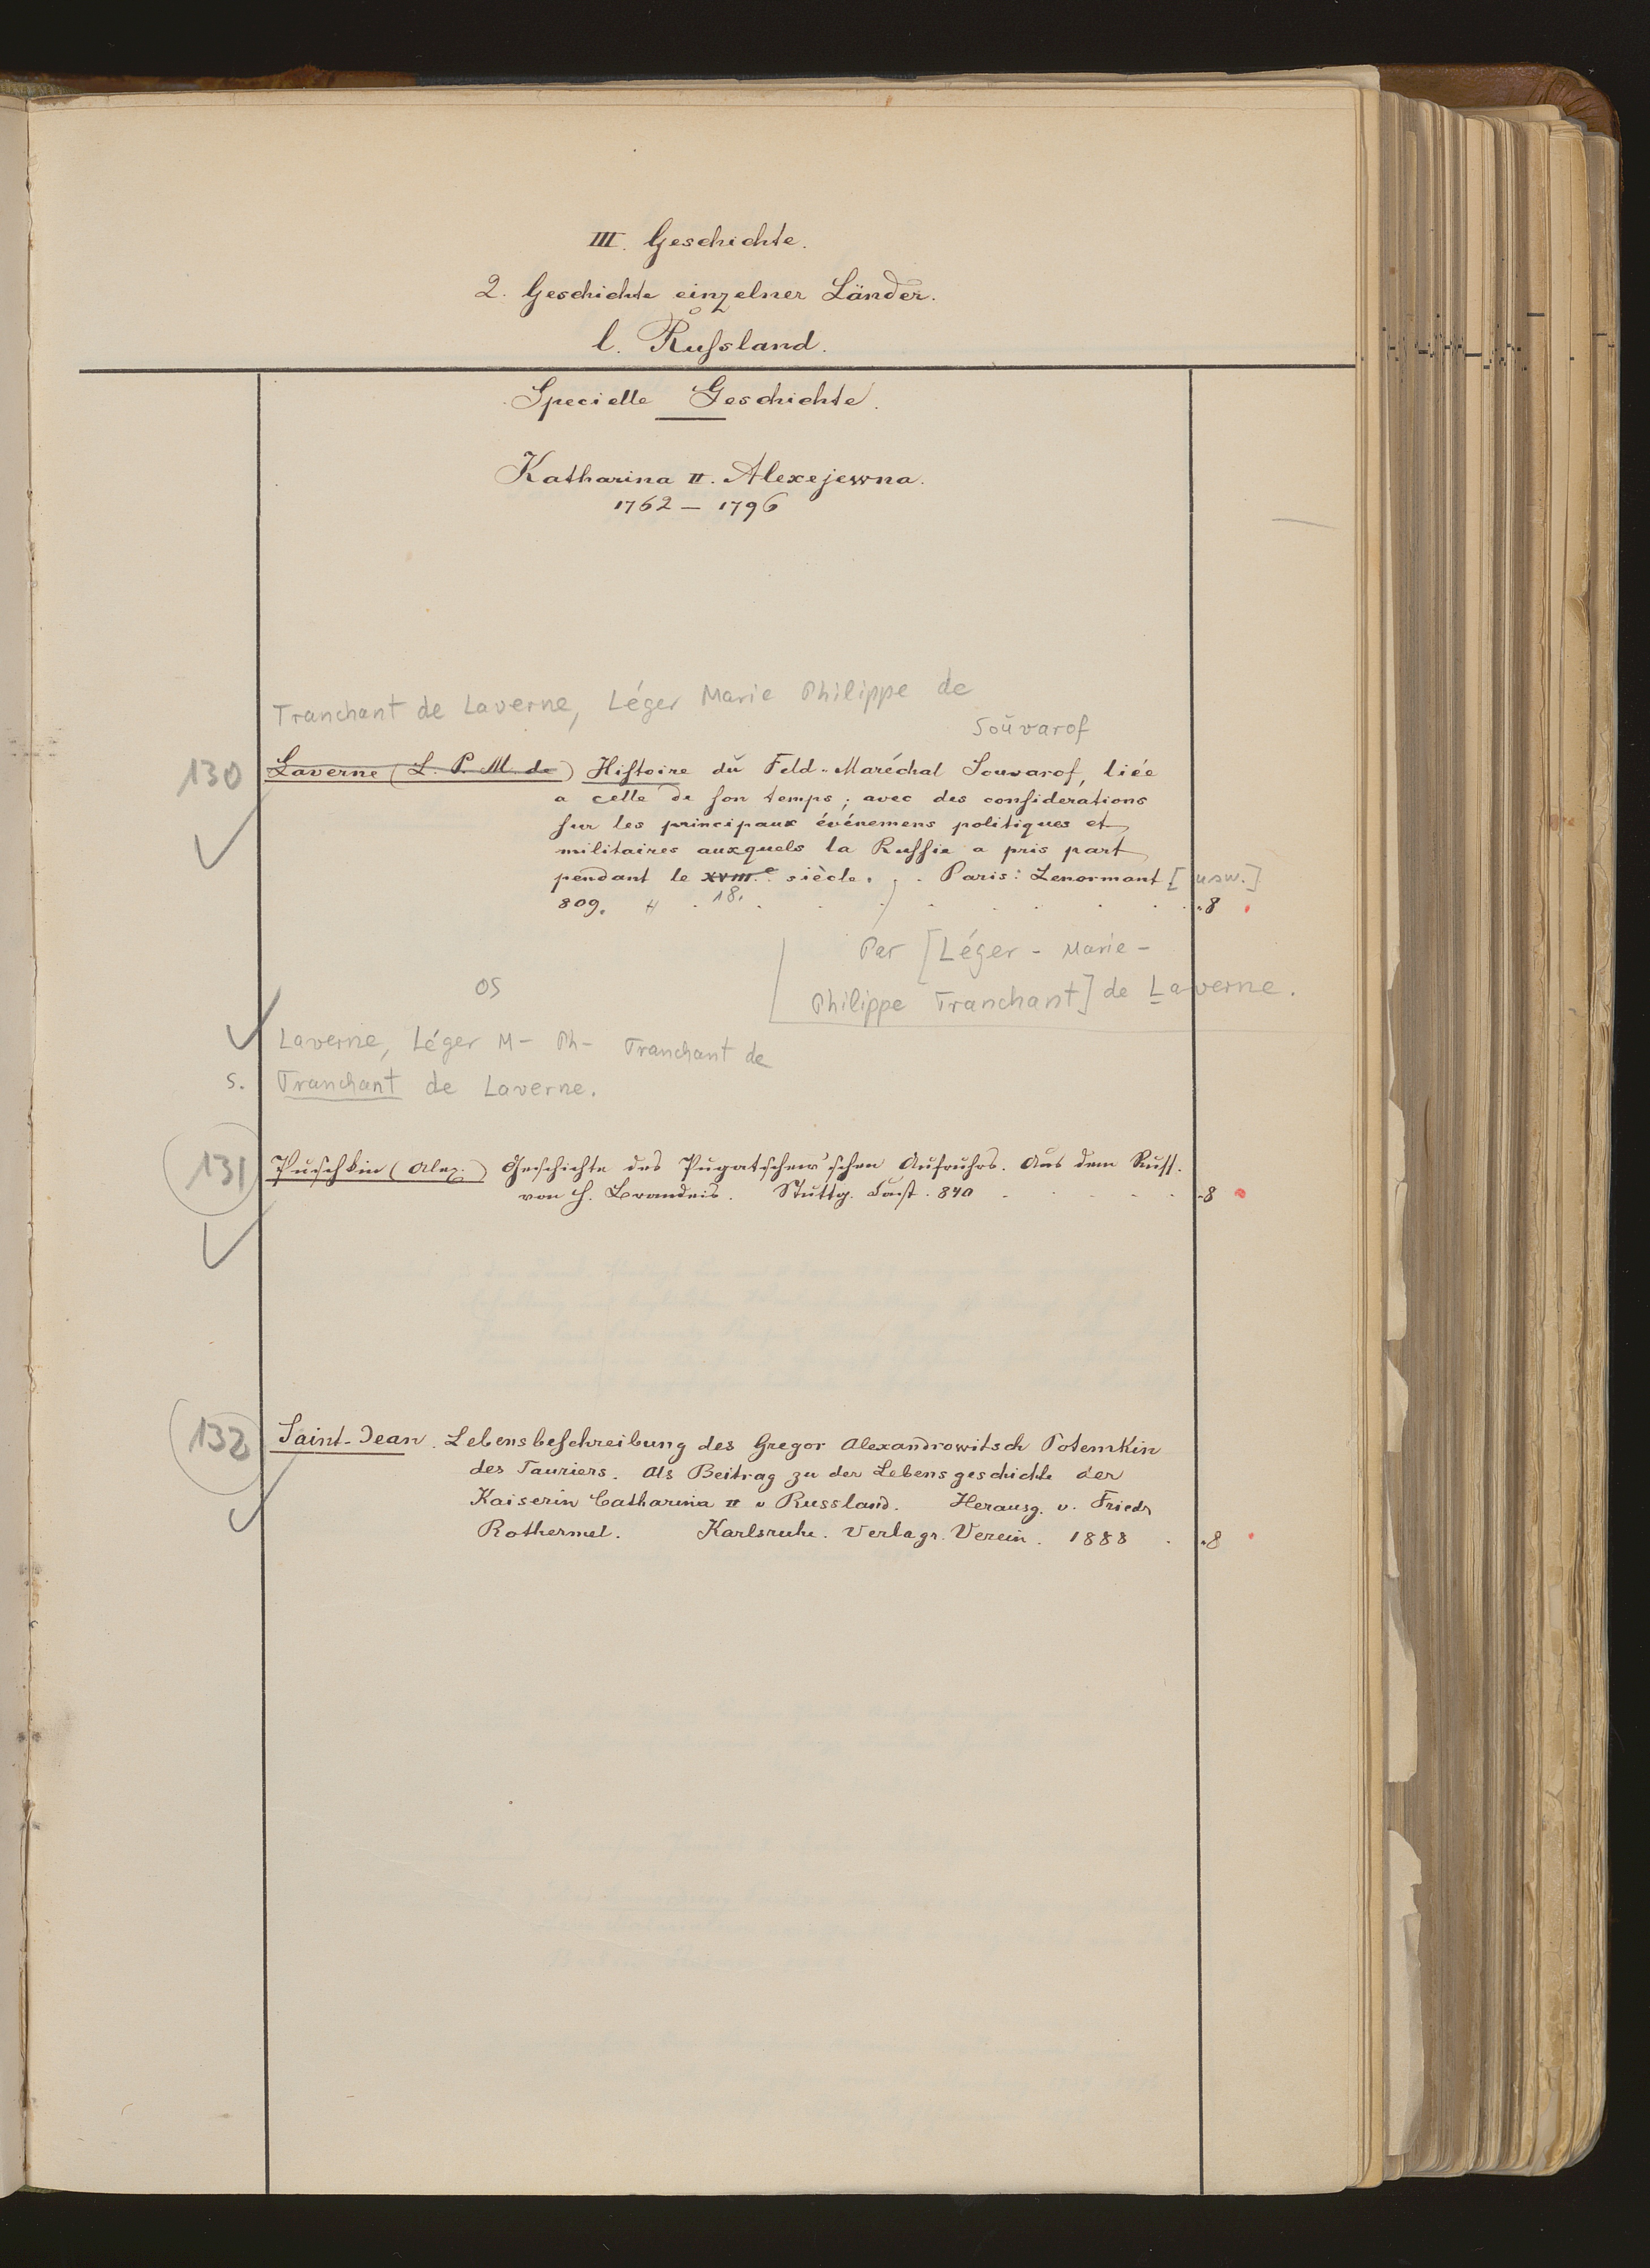 III. Geschichte.
2. Geschichte einzelner Länder.
l. Rußland.
Specielle Geschichte.
Katharina II. Alexejewna.
1762 – 1796
Tranchant de Laverne, Léger Marie Philippe de
Soŭvarof
130 Laverne (L. P. M. de) Hiſtoire dŭ Feld-Maréchal Souvarof, liée
a celle de ſon temps; avec des conſiderations
ſur les principaux événemens politiques et
militaires auxquels la Ruſſie a pris part
pendant le XVIIIe siècle. Paris: Lenormant [usw.]
18.
809. -8
Par [Léger-Marie-
Philippe Tranchant] de Laverne.
OS
Laverne, Léger M- Ph- Tranchant de
s. Tranchant de Laverne.
131 Puschkin (Alex.) Geschichte des Pugatschew'schen Aufruhrs. Aus dem Russ.
von H. Brandeis. Stuttg. Cast. 840 -8
132 Saint-Jean. Lebensbeſchreibung des Gregor Alexandrowitsch Potemkin
des Tauriers. Als Beitrag zu der Lebensgeschichte der
Kaiserin Catharina II v Russland. Herausg. v. Friedr
Rothermel. Karlsruhe. Verlags. Verein. 1888 -8